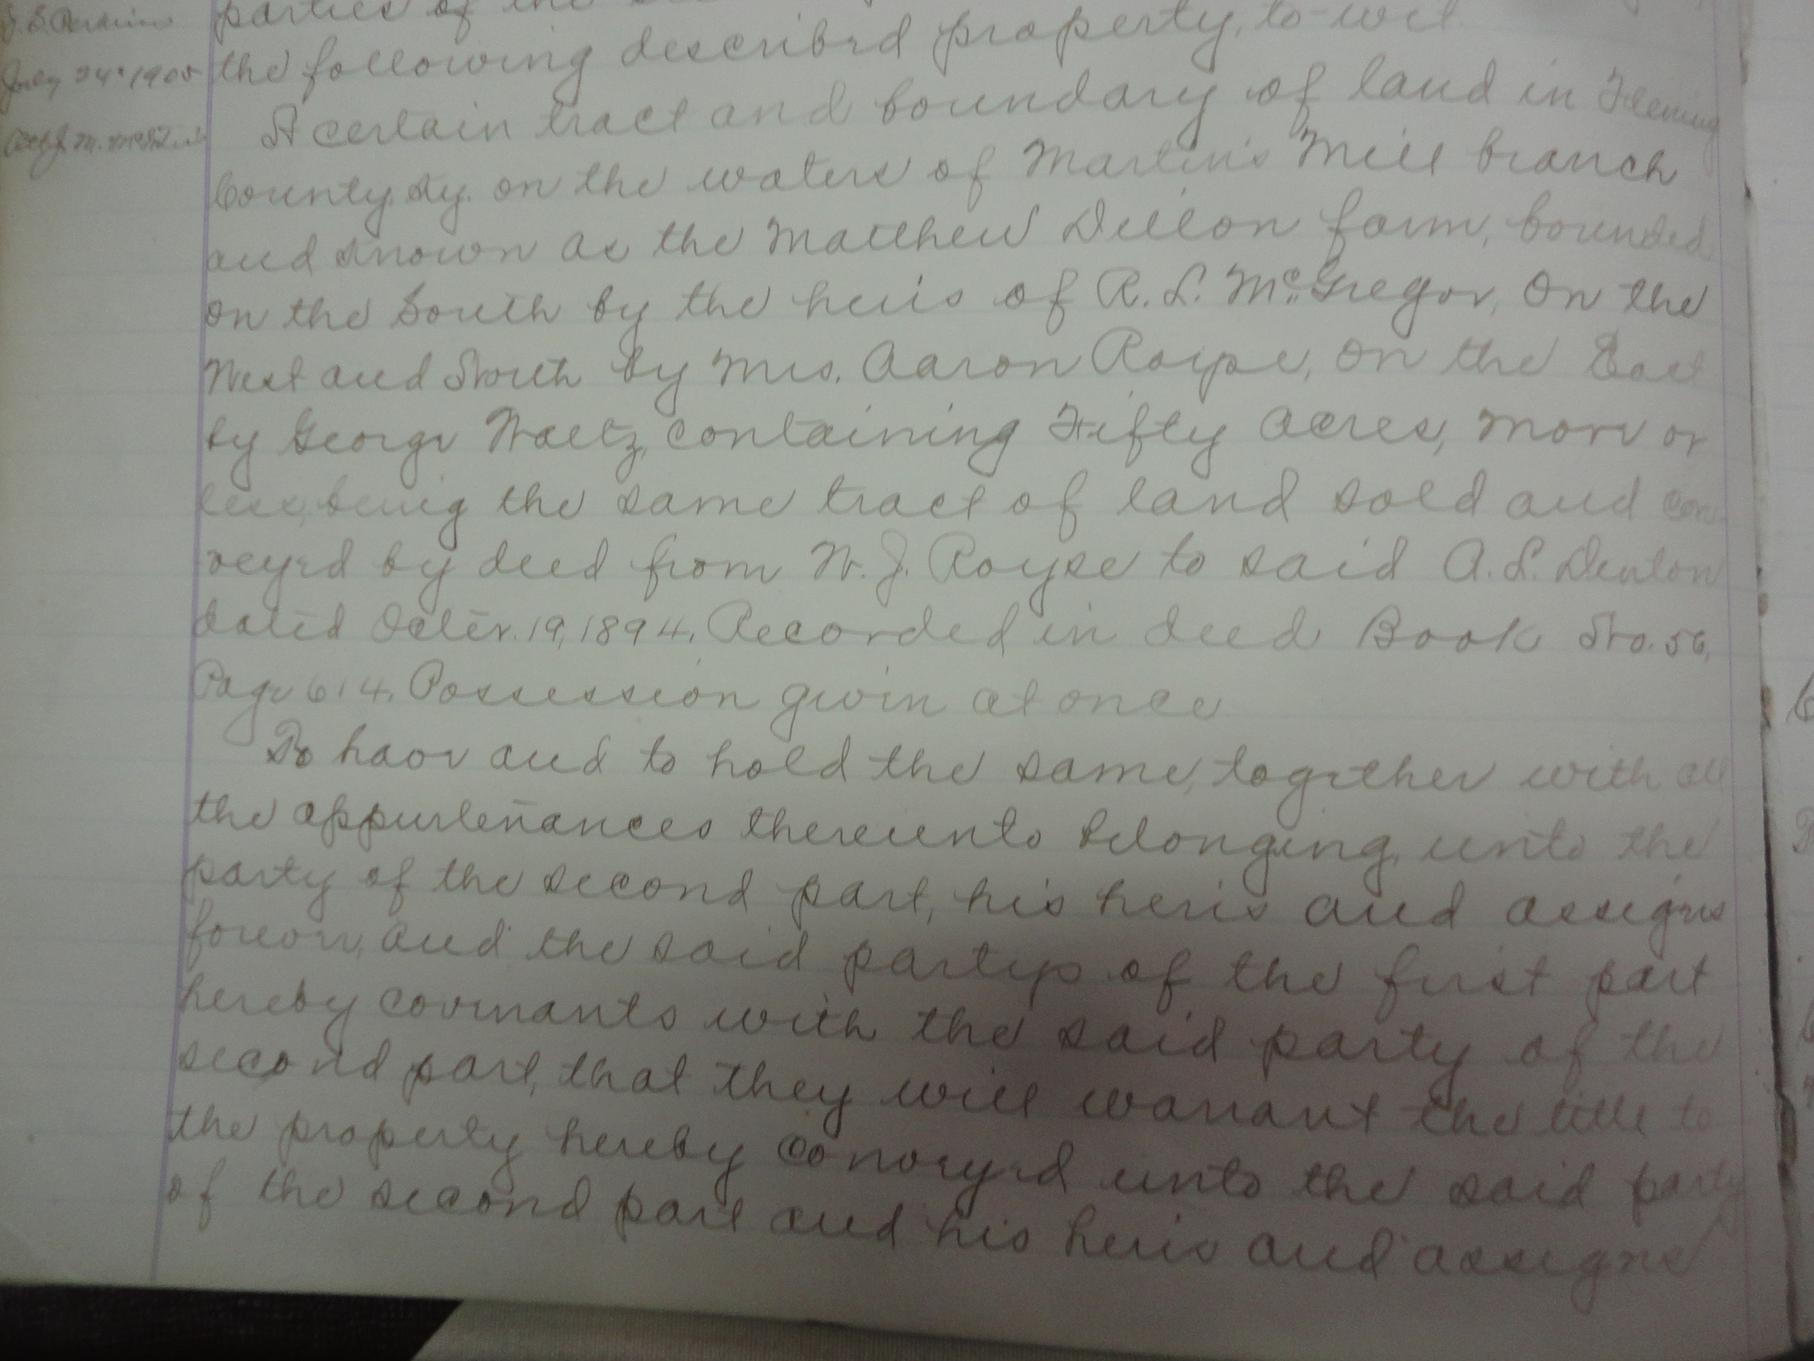 parties of the
the following described property, to-wit
July 24" 1905
A certain tract and boundary of land in Fleming
County Ky. on the waters of Martin's Mill branch
and known as the Matthew Dillon farm, bounded
on the South by the heirs of R. L. McGregor, On the
West and North by Mrs. Aaron Royse, On the East
by George Waltz, containing Fifty acres, more or
less, being the same tract of land sold and con-
veyed by deed from W. J. Royse to said A. L. Denton
dated Octer. 19, 1894, Recorded in deed Book No. 56,
Page 614. Possession given at once
To have and to hold the same, together with all
the appurtenances thereunto belonging, unto the
party of the second part, his heirs and assigns
forever, and the said partys of the first part
hereby covenants with the said party of the
second part, that they will warrant the title to
the property hereby conveyed unto the said party
of the second part and his heirs and assigns